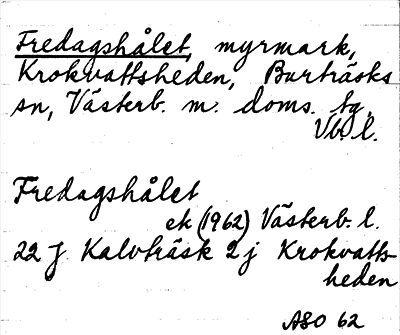 Fredagshålet, myrmark,
Krokvattsheden, Burträsks
sn, Västerb. m. doms. tg,
Vb. l.
Fredagshålet
ek (1962) Västerb. l.
22 J Kalvträsk 2 j Krokvatts-
heden
ASO 62